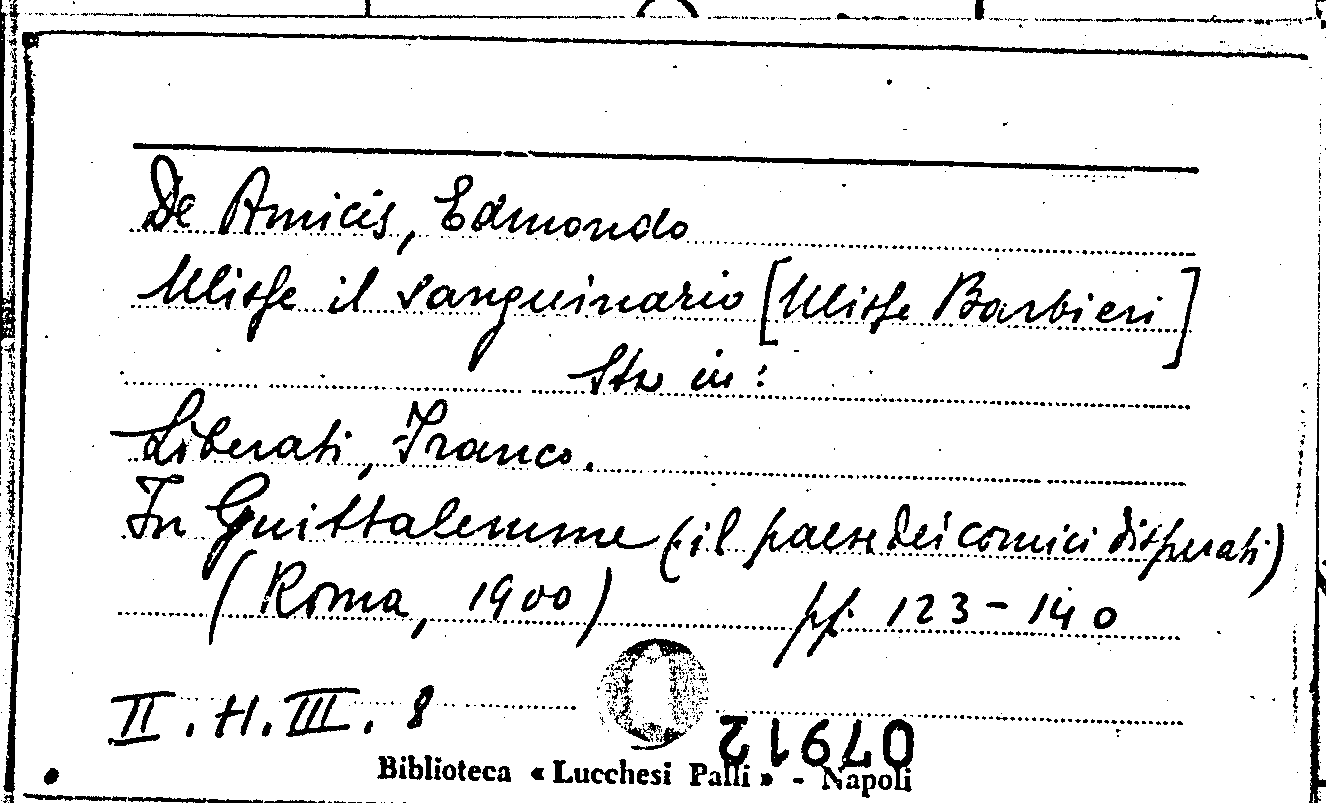 De Amicis, Edmondo
Ulisse il sanguinario [Ulisse Barbieri]
Sta in:
Liberati, Franco.
In Guittalemme (il paese dei comici disperati)
(Roma, 1900) pp. 123-140
II.H.III.8
07912
Biblioteca « Lucchesi Palli » - Napoli